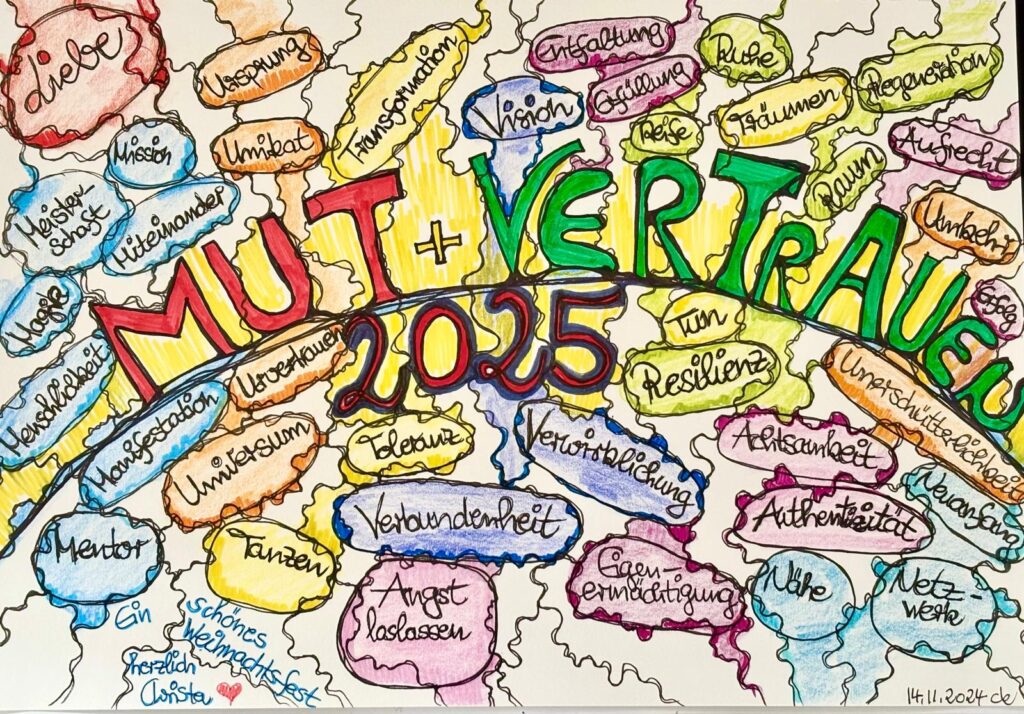 Liebe
Ursprung
Transformation
Vision
Entfaltung
Erfüllung
Ruhe
Reise
Träumen
Regeneration
Mission
Unikat
Raum
Aufrecht
Meister-
schaft
Miteinander
Umkehr
Magie
Erfolg
MUT + VERTRAUEN
2025
Tun
Resilienz
Menschlichkeit
Manifestation
Urvertrauen
Universum
Toleranz
Verwirklichung
Achtsamkeit
Unerschütterlichkeit
Mentor
Tanzen
Verbundenheit
Authentizität
Neuanfang
Angst
loslassen
Eigen-
ermächtigung
Nähe
Netz-
werk
Ein
schönes
Weihnachtsfest
herzlich
Christa
14.11.2024 de